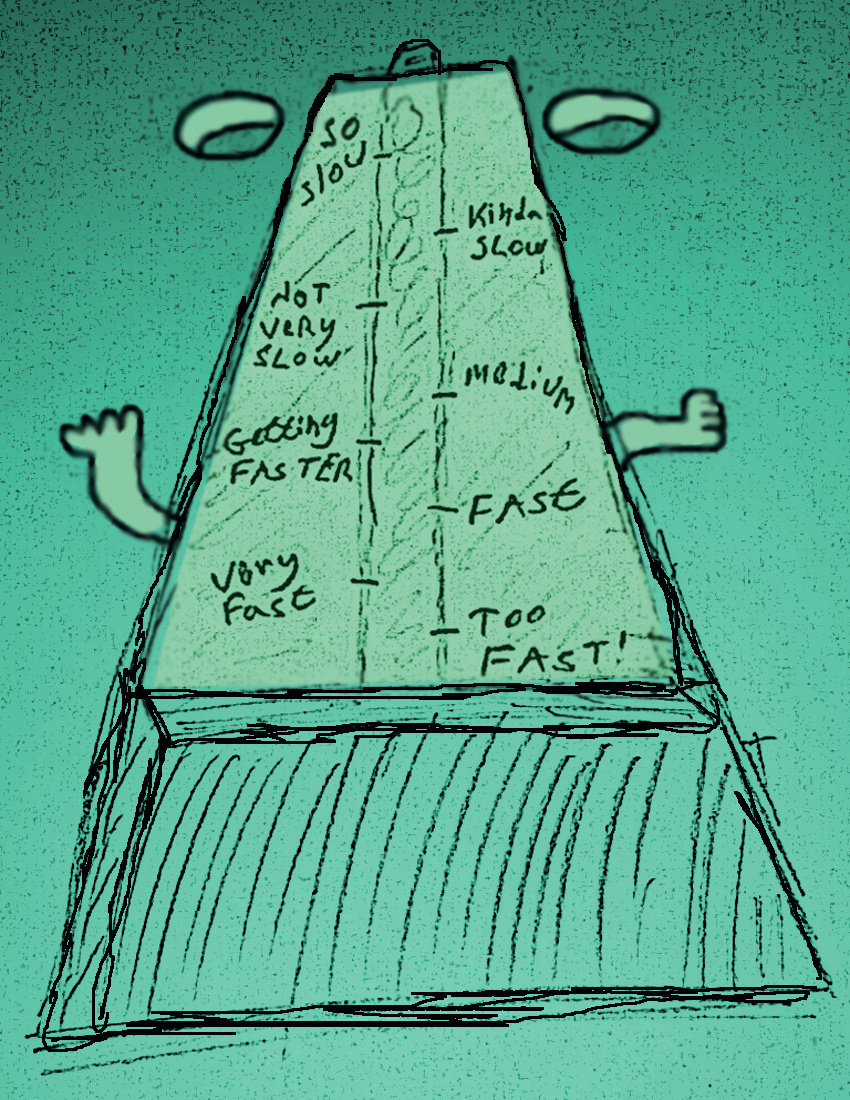 SO
SLOW
Kinda
SLOW
NOT
VERY
SLOW
MEDIUM
Getting
FASTER
FAST
Very
Fast
TOO
FAST!